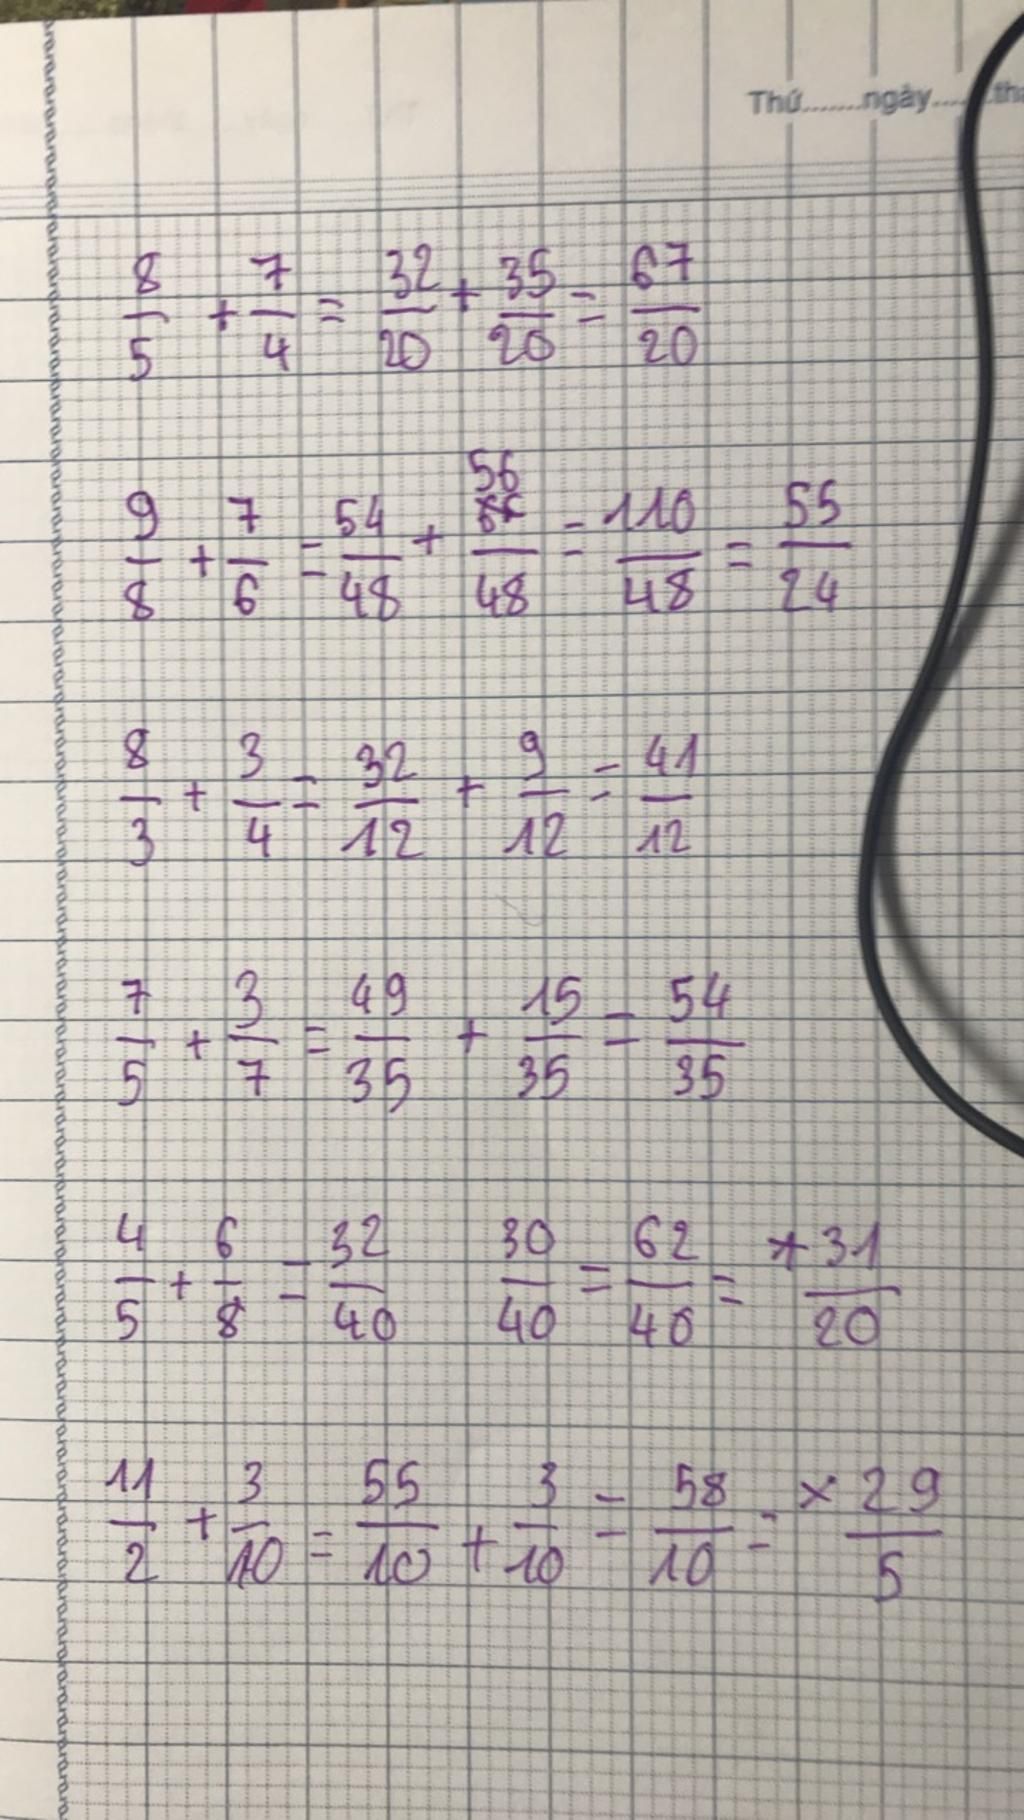 Thứ.......ngày........th
8/5 + 7/4 = 32/20 + 35/20 = 67/20
9/8 + 7/6 = 54/48 + 56/48 = 110/48 = 55/24
8/3 + 3/4 = 32/12 + 9/12 = 41/12
7/5 + 3/7 = 49/35 + 15/35 = 54/35
4/5 + 6/8 = 32/40 30/40 = 62/40 = * 31/20
11/2 + 3/10 = 55/10 + 3/10 = 58/10 = × 29/5